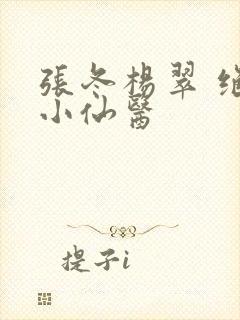 張冬楊翠
小仙醫
提子i